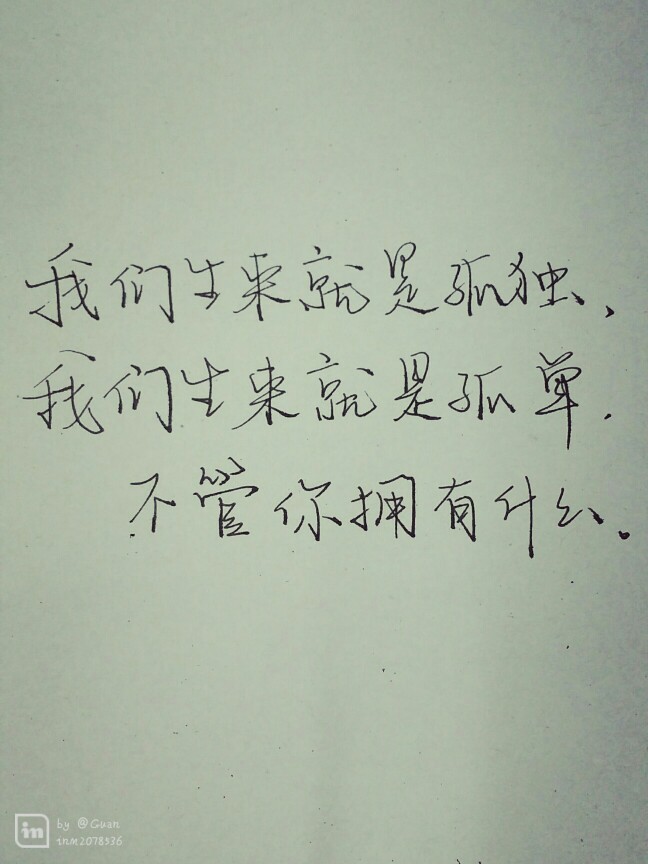 我们生来就是孤独,
我们生来就是孤单.
不管你拥有什么.
in by @Guan
inm2078936